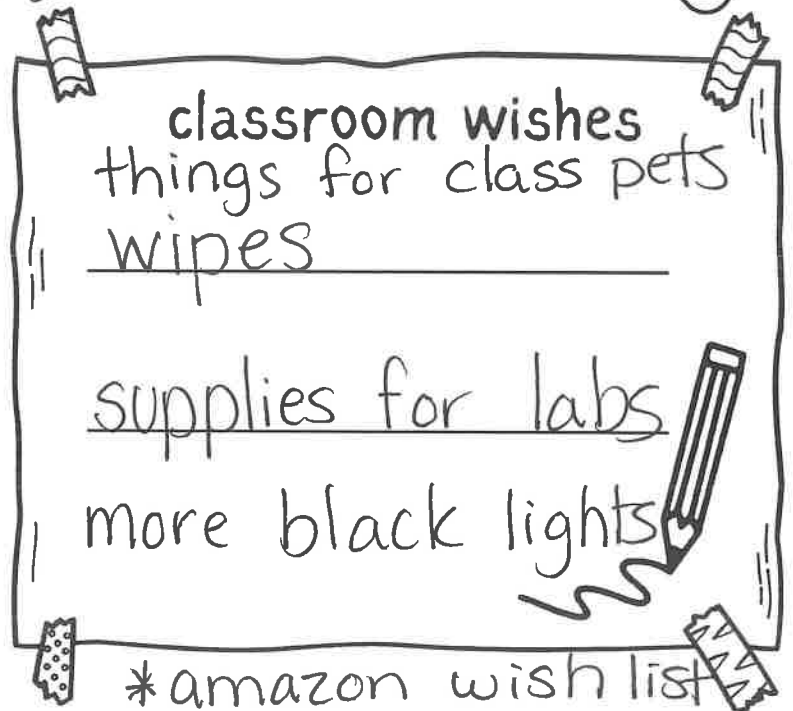 classroom wishes
things for class pets
wipes
supplies for labs
more black lights
*amazon wish list